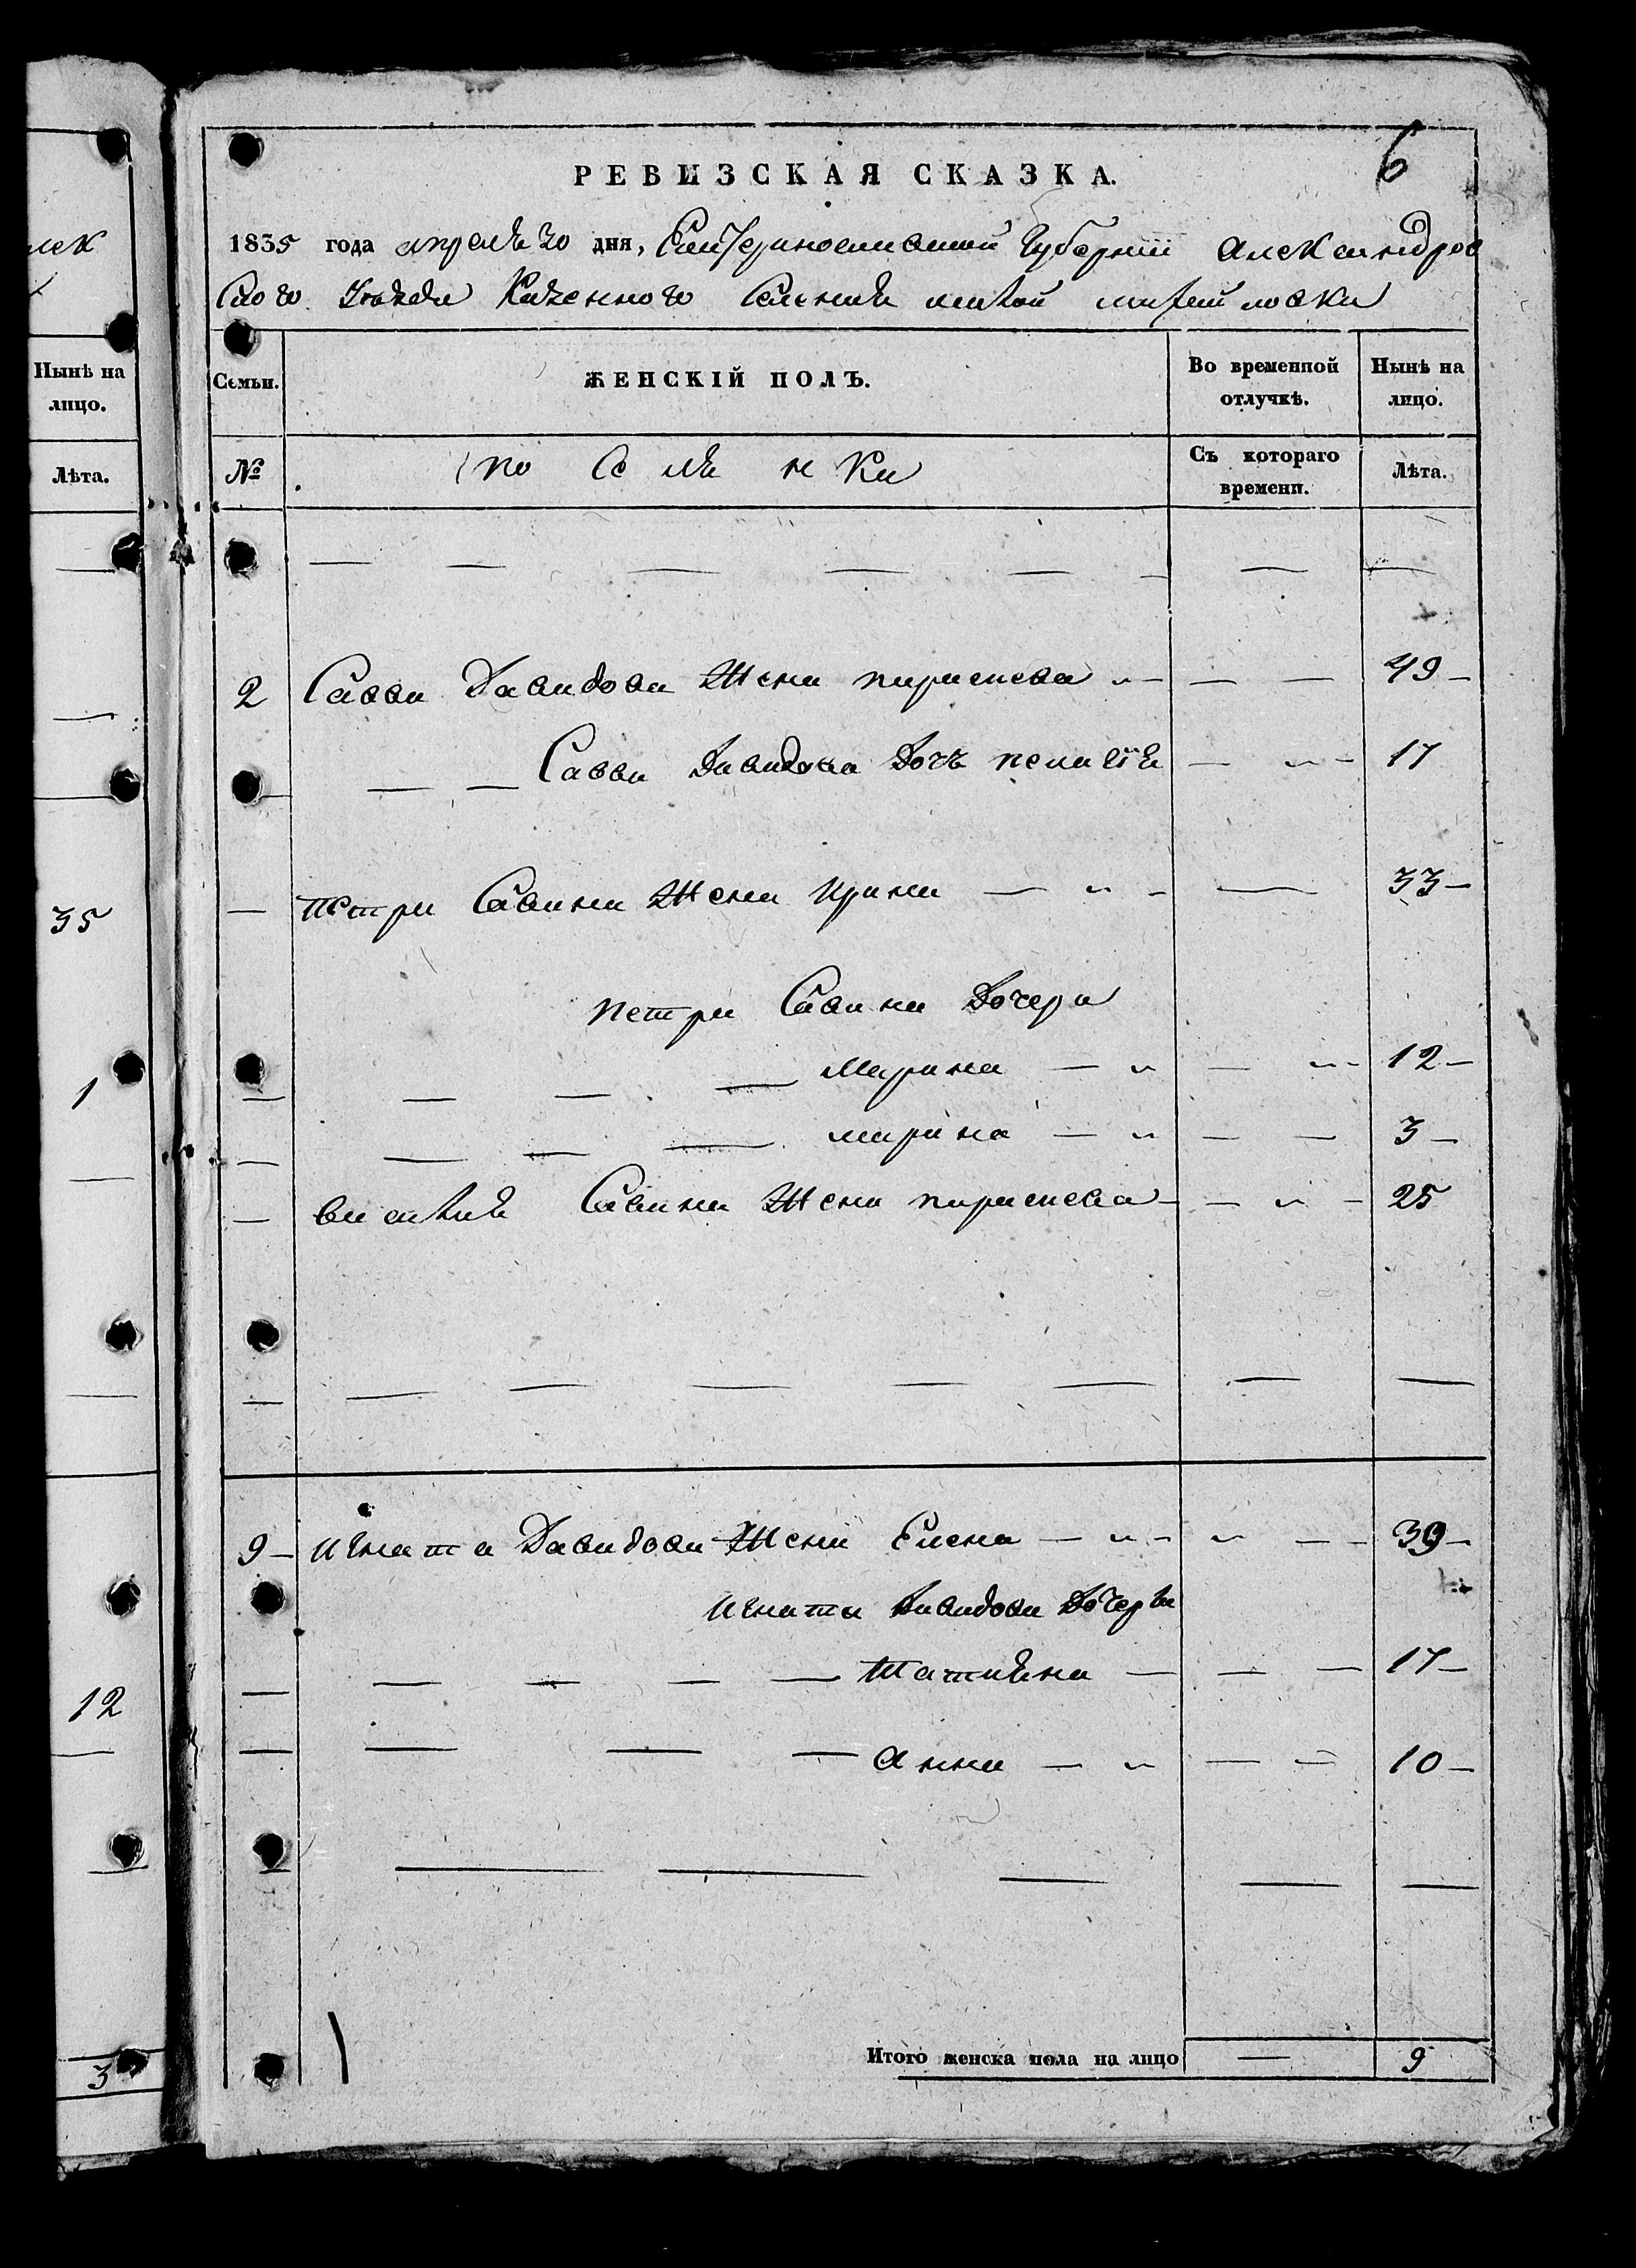 лек
Нынѣ на
лицо.
Лѣта.
35
1
12
3
6
РЕВИЗСКАЯ СКАЗКА.
1835 года апреля 20 дня, Екатеринославской Губернии Александров
ского уезда Казенного Селения
Семьи.
ЖЕНСКІЙ ПОЛЪ.
Во временной отлучкѣ.
Нынѣ на лицо.
№
поселянки
Съ котораго времени.
Лѣта.
2 Савы Давидова Жена параскева 49
Савы Давидова Дочь пелагія 17
петра Савина Жена ирина 33
петра Савина Дочери
Марина 12
марина 3
василия Савина Жена параскева 25
9 игната Давидова Жена Елена 39
игната Давидова Дочери
Татияна 17
Анна 10
Итого женска пола на лицо 9